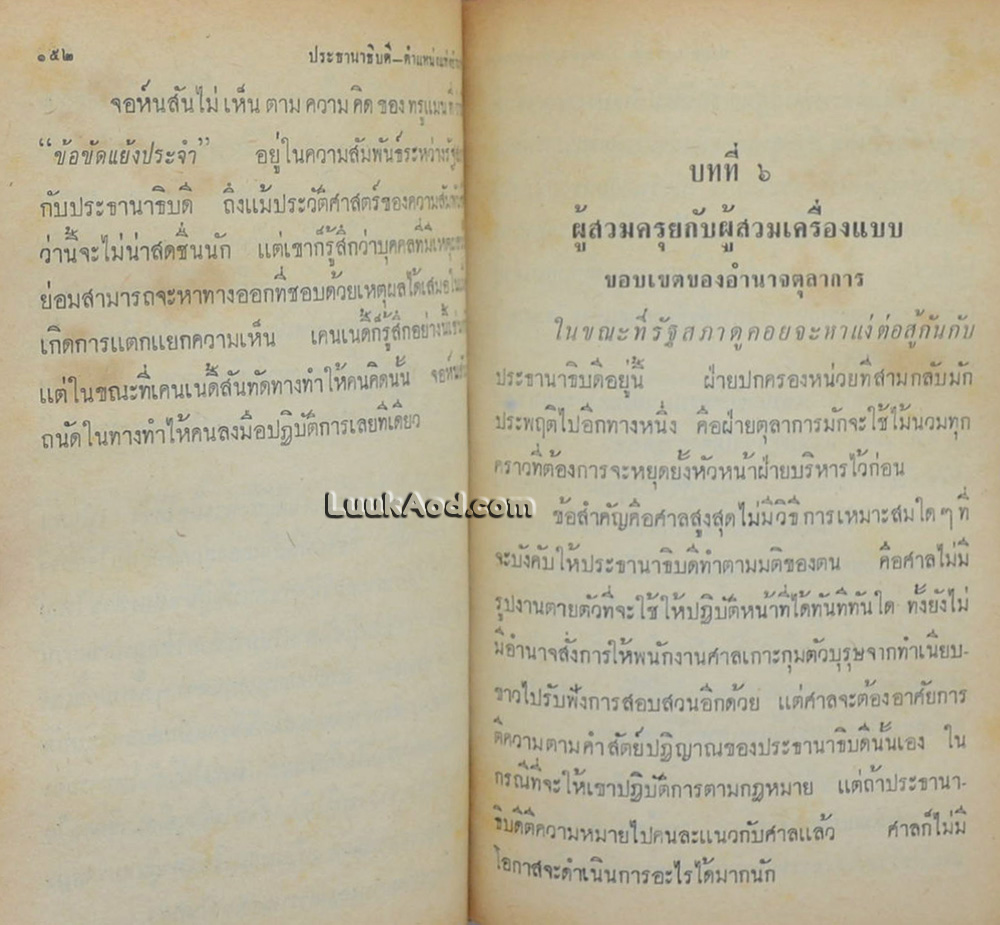 ๑๕๒ ประธานาธิบดี—ตำแหน่งแห่ง
จอห์นสันไม่ เห็น ตาม ความ คิด ของ ทรูแมน
“ข้อขัดแย้งประจำ” อยู่ในความสัมพันธ์ระหว่าง
กับประธานาธิบดี ถึงแม้ประวัติศาสตร์ของความสัมพันธ์
ว่านี้จะไม่น่าสดชื่นนัก แต่เขาก็รู้สึกว่าบุคคลที่มีเหตุผล
ย่อมสามารถจะหาทางออกที่ชอบด้วยเหตุผลได้เสมอ
เกิดการแตกแยกความเห็น เคนเนดี้ก็รู้สึกอย่างนี้
แต่ในขณะที่เคนเนดี้สันทัดทางทำให้คนคิดนั้น จอห์นสัน
ถนัดในทางทำให้คนลงมือปฏิบัติการเลยทีเดียว
บทที่ ๖
ผู้สวมครุยกับผู้สวมเครื่องแบบ
ขอบเขตของอำนาจตุลาการ
ในขณะที่รัฐสภาดูคอยจะหาแง่ต่อสู้กันกับ
ประธานาธิบดีอยู่นี้ ฝ่ายปกครองหน่วยที่สามกลับมัก
ประพฤติไปอีกทางหนึ่ง คือฝ่ายตุลาการมักจะใช้ไม้นวมทุก
คราวที่ต้องการจะหยุดยั้งหัวหน้าฝ่ายบริหารไว้ก่อน
LuukAod.com
ข้อสำคัญคือศาลสูงสุดไม่มีวิธีการเหมาะสมใดๆที่
จะบังคับให้ประธานาธิบดีทำตามมติของตน คือศาลไม่มี
รูปงานตายตัวที่จะใช้ให้ปฏิบัติหน้าที่ได้ทันทีทันใด ทั้งยังไม่
มีอำนาจสั่งการให้พนักงานศาลเกาะกุมตัวบุรุษจากทำเนียบ-
ขาวไปรับฟังการสอบสวนอีกด้วย แต่ศาลจะต้องอาศัยการ
ตีความตามคำสัตย์ปฏิญาณของประธานาธิบดีนั้นเอง ใน
กรณีที่จะให้เขาปฏิบัติการตามกฎหมาย แต่ถ้าประธานา-
ธิบดีตีความหมายไปคนละแนวกับศาลแล้ว ศาลก็ไม่มี
โอกาสจะดำเนินการอะไรได้มากนัก